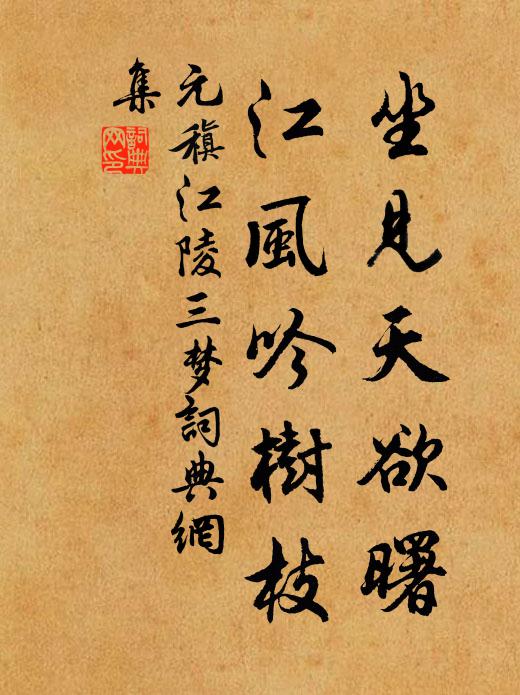 坐見天欲曙
江風吟樹枝
元稹江陵三梦詞典網
集
詞典网印